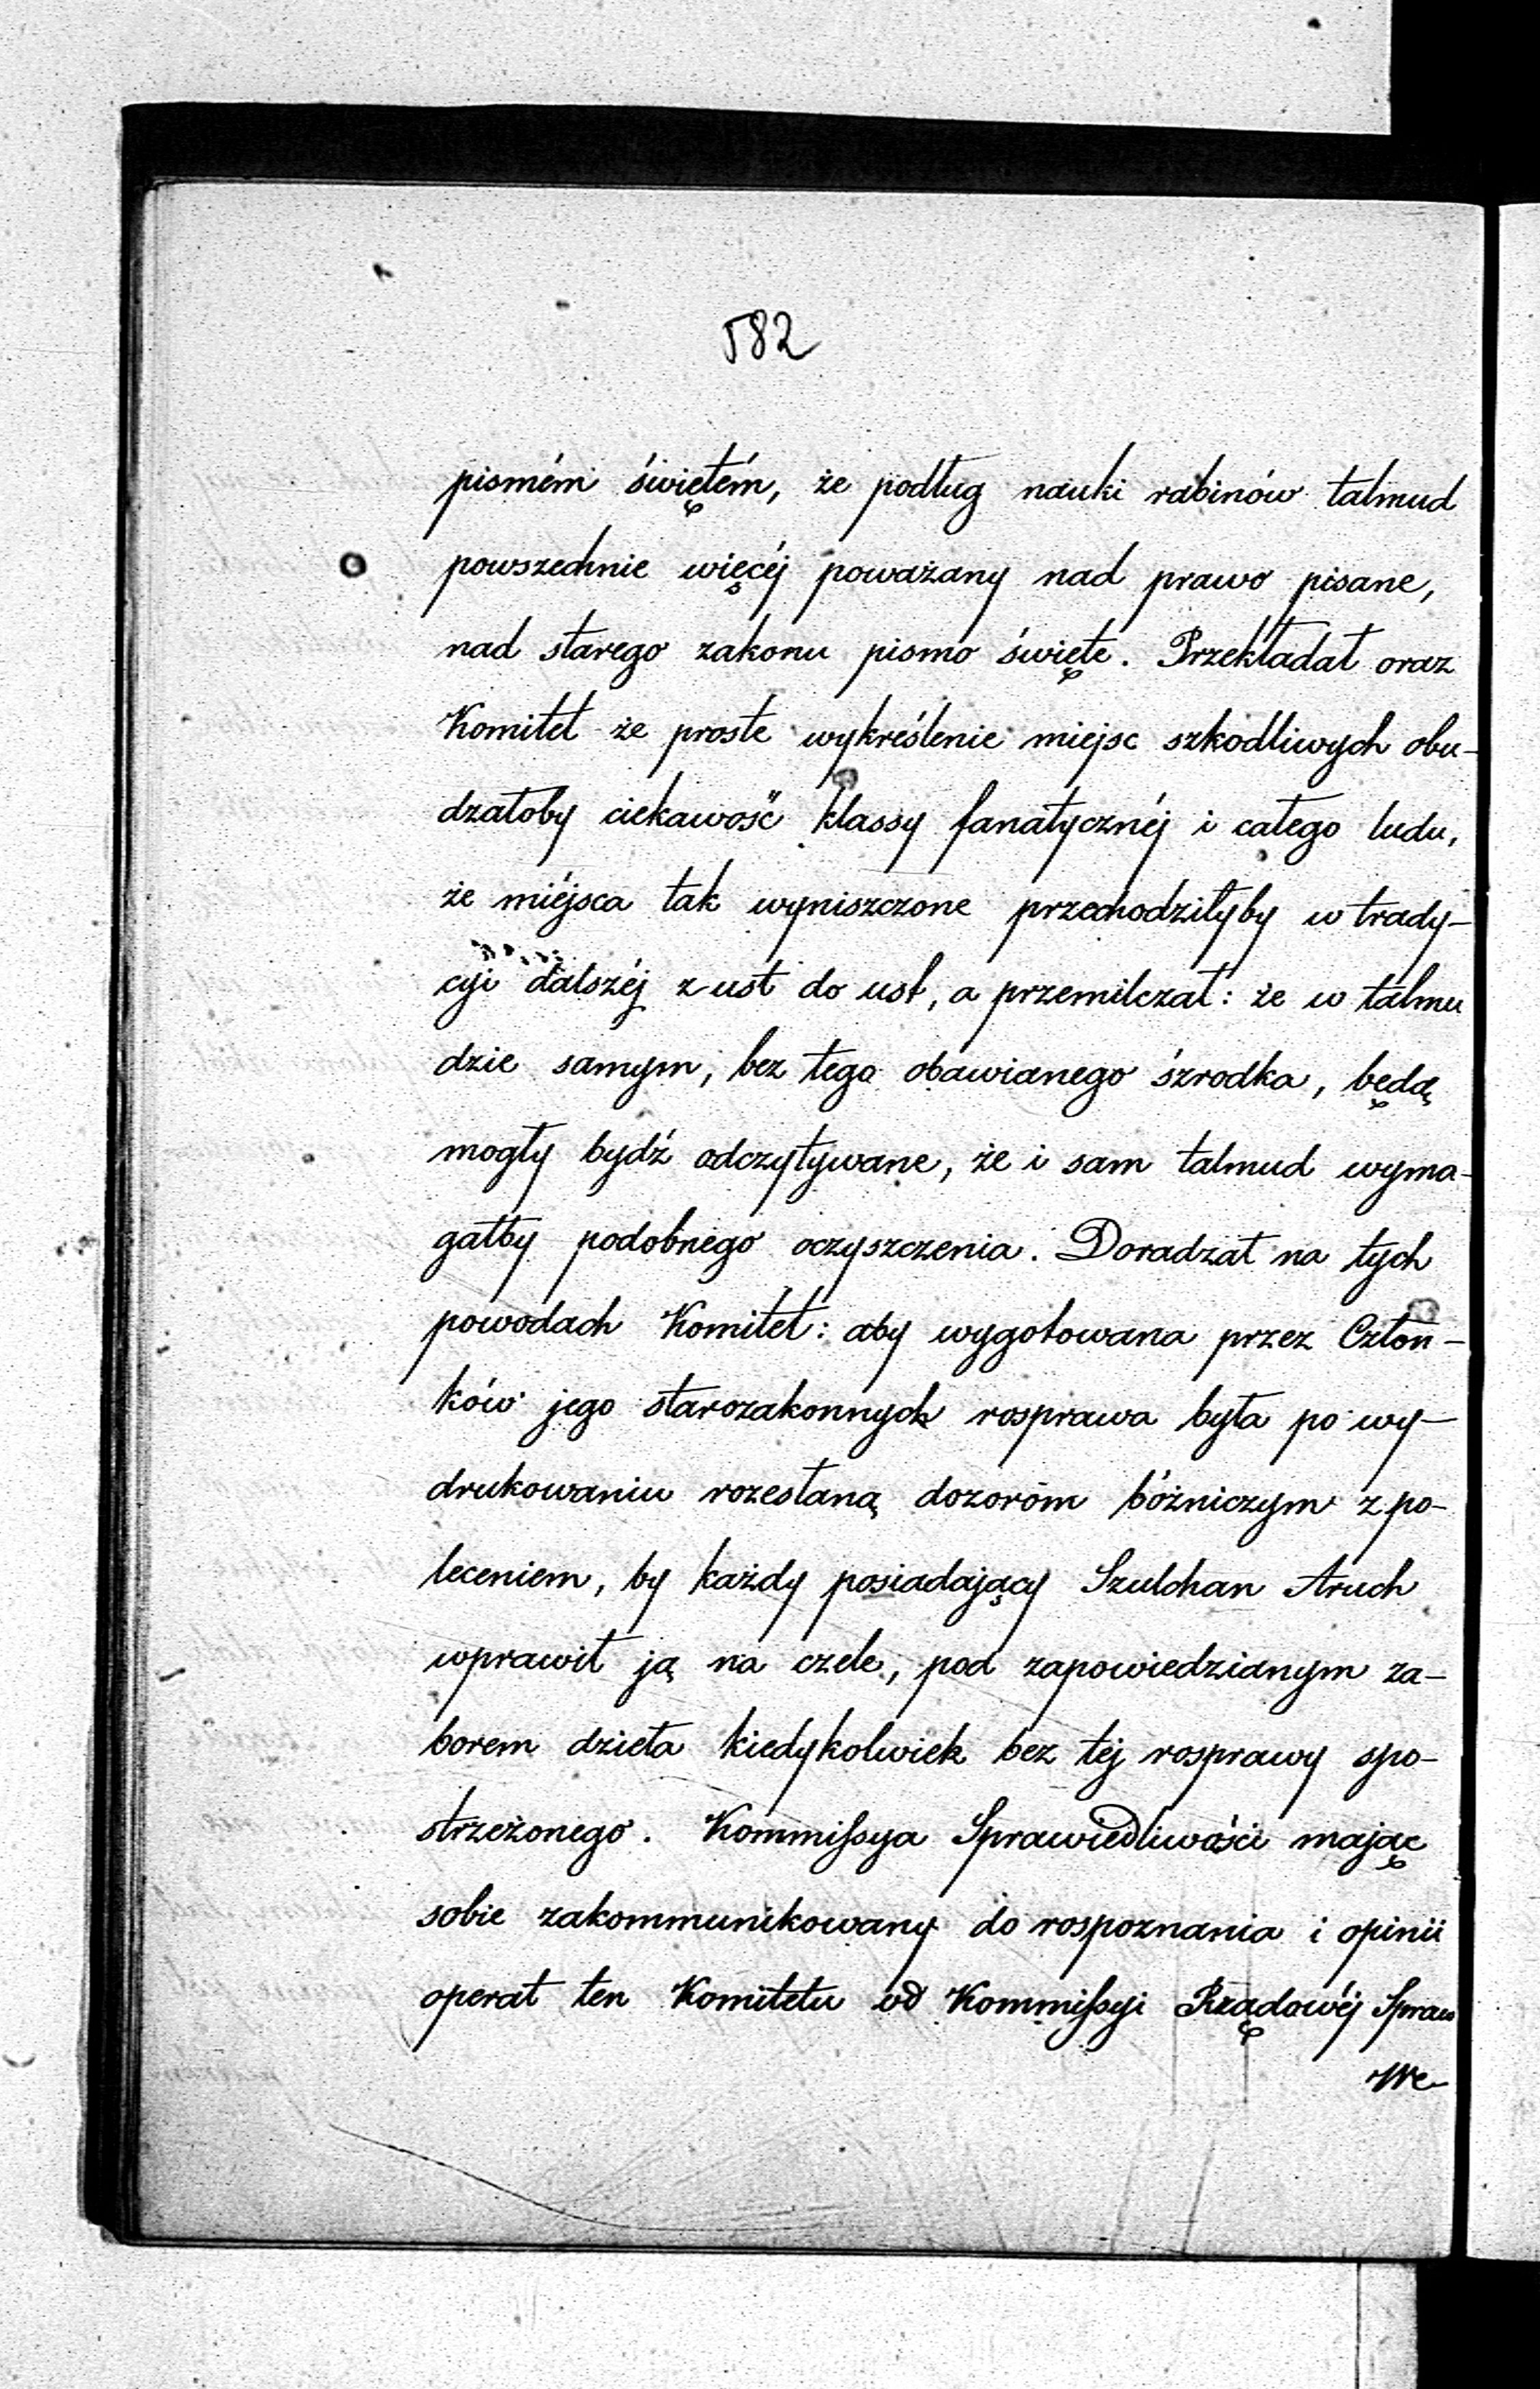 582
pismém świętém, że podług nauki rabinów talmud
powszechnie więcéj poważany nad prawo pisane,
nad starego zakonu pismo święte. Przekładał oraz
Komitet że proste wykréślenie miejsc szkodliwych obu-
dzałoby ciekawość klassy fanatycznéj i całego ludu,
że miéjsca tak wyniszczone przechodziłyby w trady-
cji dalszéj z ust do ust, a przemilczał: że w talmu
dzie samym, bez tego obawianego śzrodka, będą
mogły bydź odczytywane, że i sam talmud wyma-
gałby podobnego oczyszczenia. Doradzał na tych
powodach Komitet: aby wygotowana przez Człon-
ków jego starozakonnych rosprawa była po wy-
drukowaniu rozesłaną dozoróm bóżniczym z po-
leceniem, by każdy posiadający Szulchan Aruch
wprawił ją na czele, pod zapowiedzianym za-
borem dzieła kiedykolwiek bez tej rosprawy spo-
strzeżonego. Kommissya Sprawiedliwości mając
sobie zakommunikowany do rospoznania i opinii
operat ten Komitetu od Kommissyi Rządowéj Spraw
We-